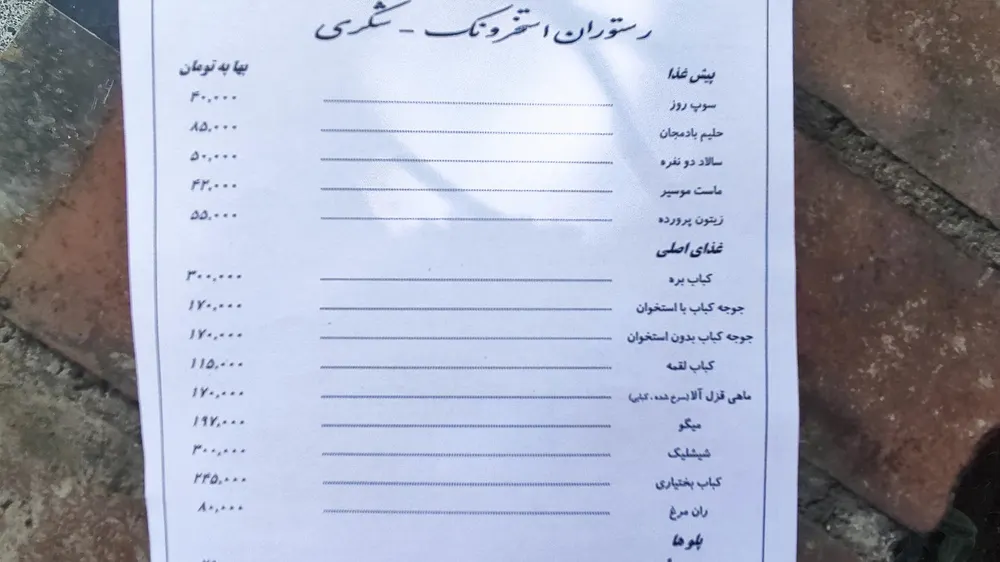 رستوران استخرونک - شکری
پیش غذا بها به تومان
سوپ روز ۴۰,۰۰۰
حلیم بادمجان ۸۵,۰۰۰
سالاد دو نفره ۵۰,۰۰۰
ماست موسیر ۴۲,۰۰۰
زیتون پرورده ۵۵,۰۰۰
غذای اصلی
کباب بره ۳۰۰,۰۰۰
جوجه کباب با استخوان ۱۷۰,۰۰۰
جوجه کباب بدون استخوان ۱۷۰,۰۰۰
کباب لقمه ۱۱۵,۰۰۰
ماهی قزل آلا (سرخ شده، کبابی) ۱۷۰,۰۰۰
میگو ۱۹۷,۰۰۰
شیشلیک ۳۰۰,۰۰۰
کباب بختیاری ۲۴۵,۰۰۰
ران مرغ ۸۰,۰۰۰
پلوها